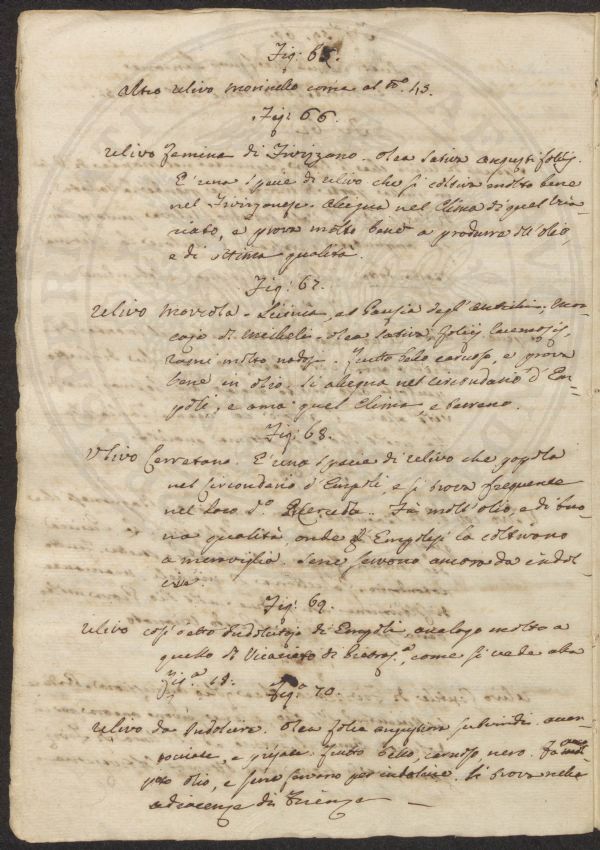 Fig: 65.
Altro Ulivo Morinello come al N.º 43.
Fig: 66.
Ulivo femina di Fivizzano. Olea sativa angustifolij.
E' una specie di ulivo che si coltiva molto bene
nel Fivizzanese. Alligna nel Clima di quel
e prova molto bene a produrre dell'olio,
e di ottima qualità.
Fig: 67.
Ulivo Morcola. Licinia, ed Pausia degl'Antichi;
di Micheli. Olea sativa, folijs
rami molto nodosi. frutto bello carnoso, e prova
bene in olio. Si alligna nel circondario d'Em-
poli, e ama quel Clima, e terreno.
Fig: 68.
Ulivo Cerretano. E' una specie di ulivo che popola
nel circondario d'Empoli, e si trova frequente
nel loco d.º Fa molt'olio, e di buo-
na qualità, onde gl'Empolesi la coltivono
a meraviglia. Sene servono ancora da indol-
cire.
Fig: 69.
Ulivo così detto Indolcitojo di Empoli, analogo molto a
quello di di Pietros.ª, come si vede alla
Fig.ª 48. Fig.ª 70.
Ulivo da Indolcire. Olea folia angustiora subviridi.
e frutto bello, carnoso nero. fa
olio, e sene servono per indolcire. Si trova nelle
adiacenze di Firenze